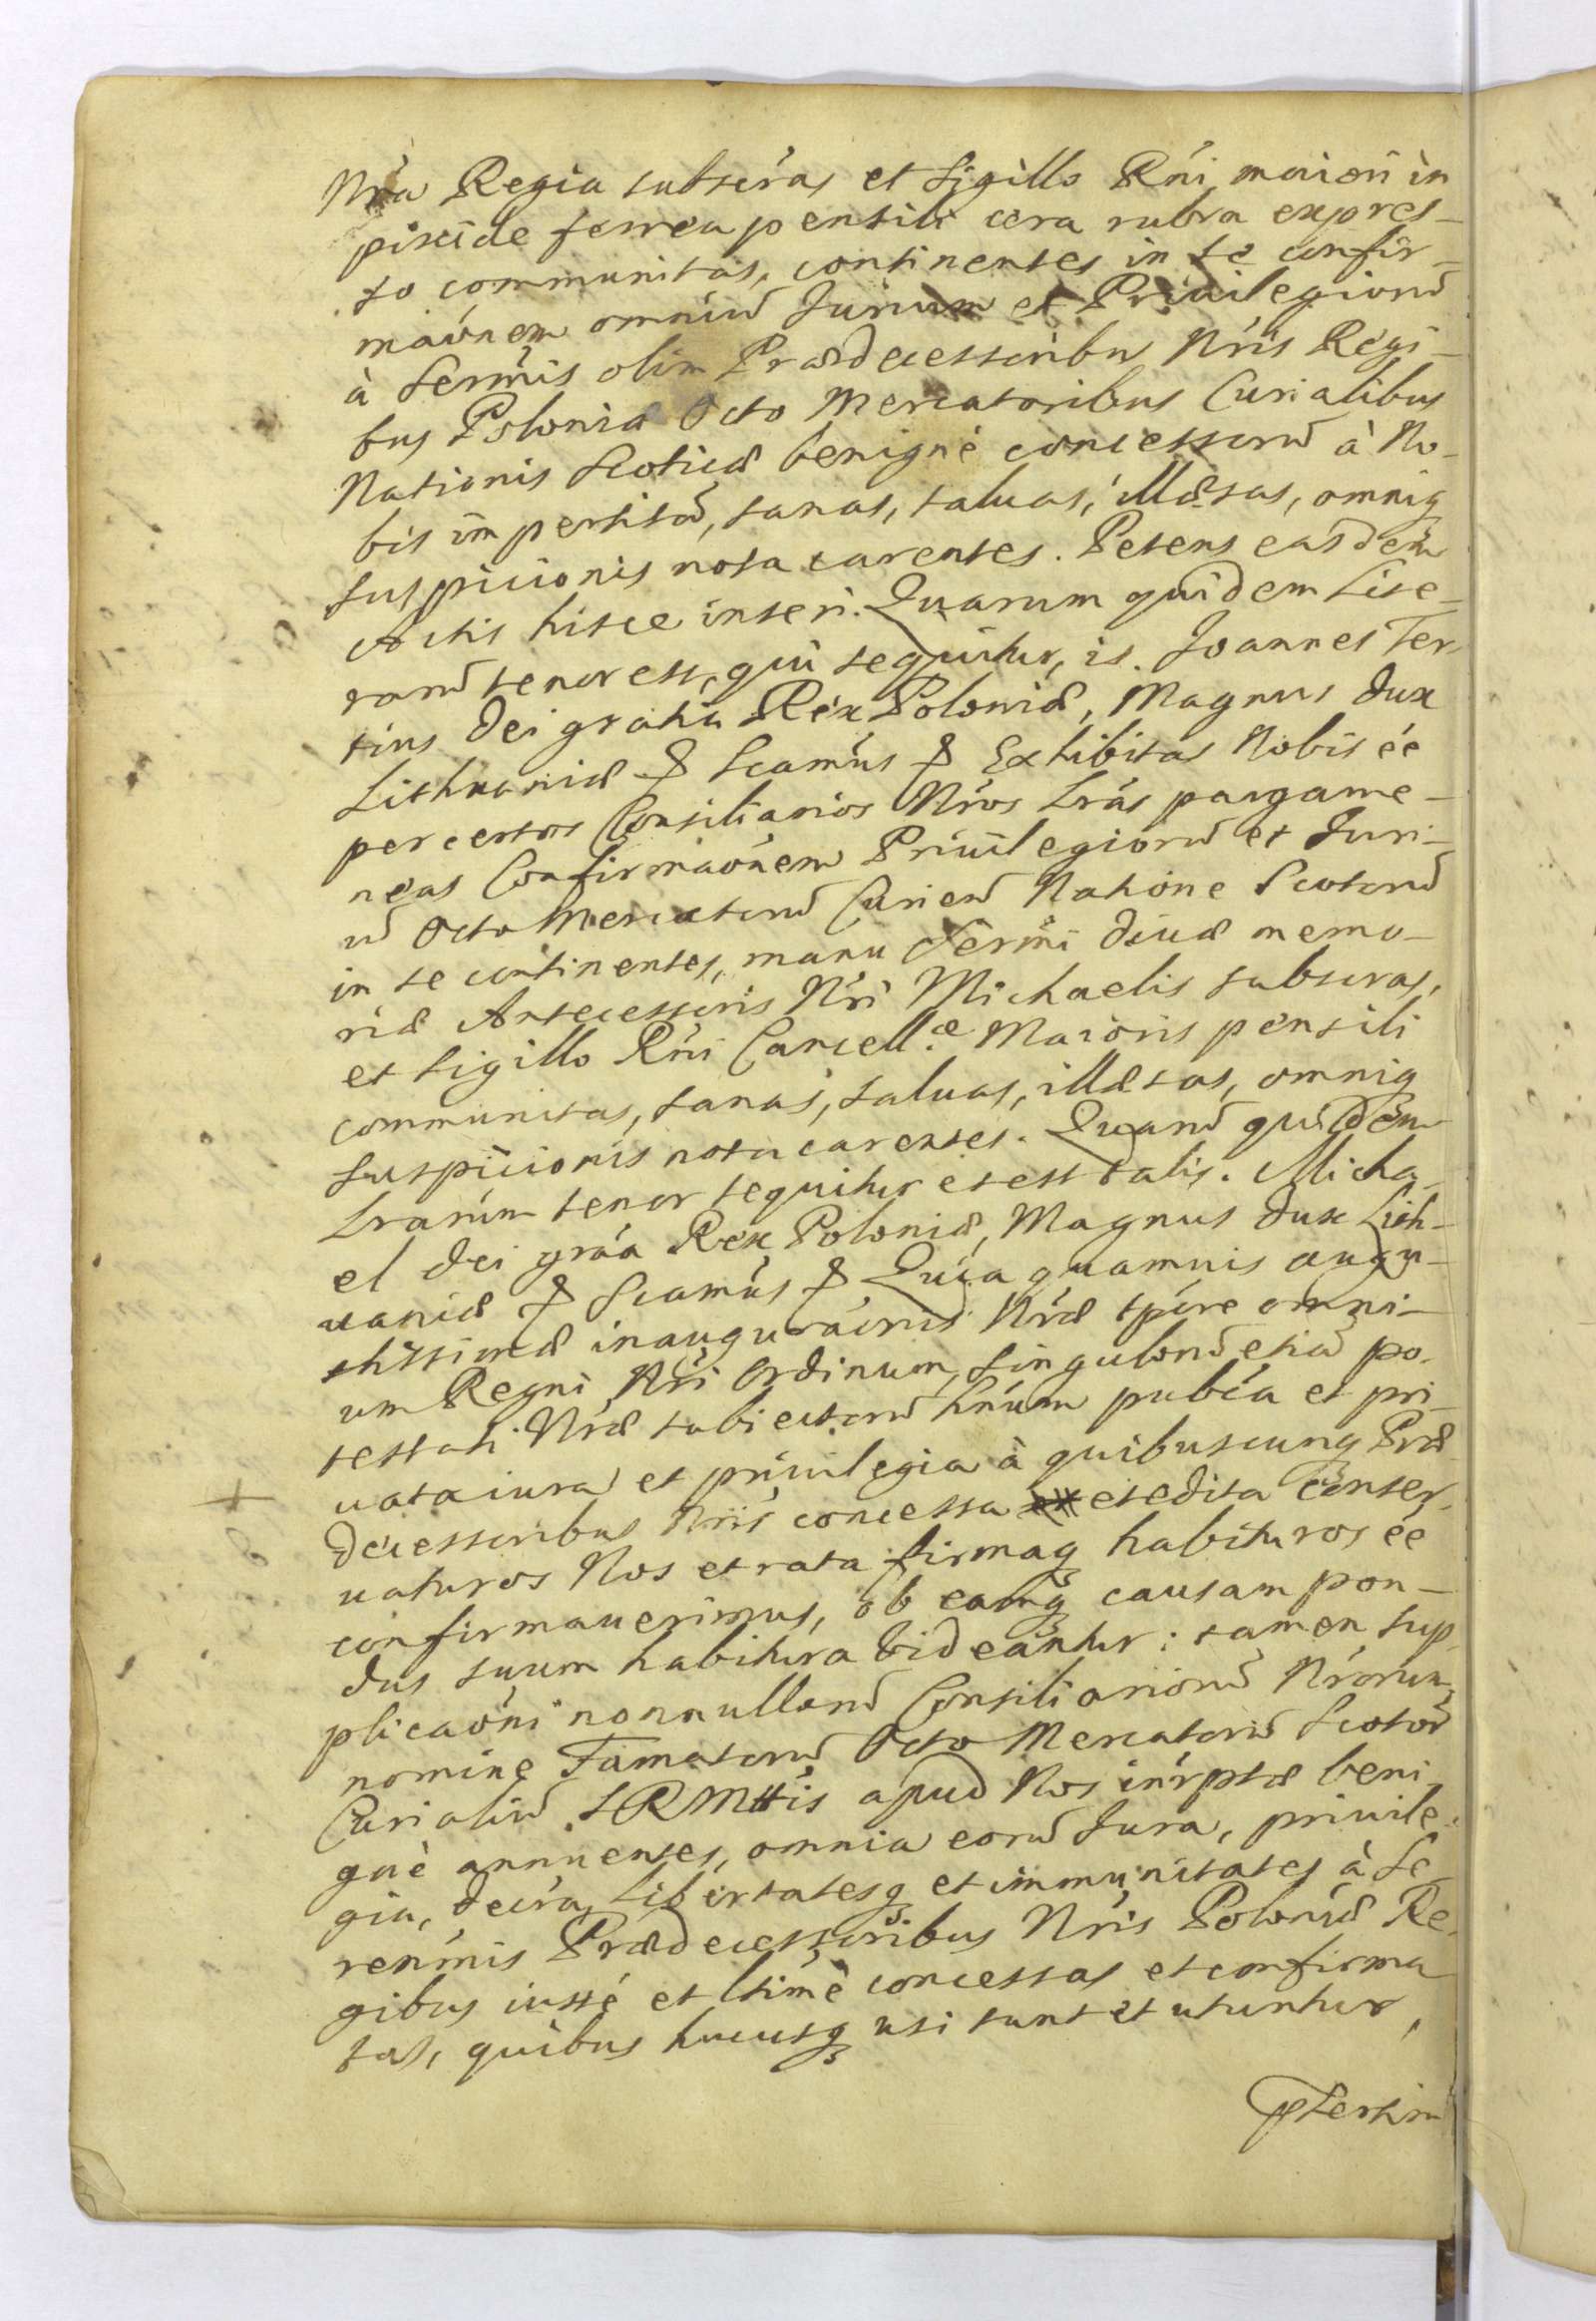 Nrã Regia subscrás et Sigillo Rńi maiori in
pixide ferrea pensili cera rubra expres-
so communitas, continentes in se confir-
maónem omniũ Jurium et Priuilegiorũ
à Sermis olim Prædecessoribus Nris Regi-
bus Poloniæ Octo Mercatoribus Curialibus
Nationis Scoticæ benignè concessorũ à No-
bis impertitã, sanas, saluas, illæsas, omniq
suspicionis nota carentes. Petens easdem
Actis hisce inseri. Quarum quidem Lite-
rarũ tenor est, qui sequitur, is. Joannes Ter-
tius Dei gratia Rex Poloniæ, Magnus Dux
Lithuaniæ & Scamús & Exhibitas Nobis ée
per certos Consiliarios Nŕos Lrás pargame-
neas Confirmaónem Priuilegiorũ et Juri-
ũ Octo Mercatorũ Curieñ Natione Scotorũ
in se continentes, manu Sermi Diuæ memo-
riæ Antecessoris Nŕi Michaelis subscras,
et Sigillo Rńi Cancell.æ Maioris pensili
communitas, sanas, saluas, illæsas, omniq
suspicionis nota carentes. Quarũ quidem
Lrarúm tenor sequitur et est talis. Micha-
el Dei gráa Rex Poloniæ, Magnus Dux Lith-
uaniæ & Scamús & Quia quamuis augu-
stissimæ inauguraónis Nŕæ tpóre omni-
um Regni Nŕi Ordinum, singulorũ etiã po-
testati Nŕæ subiectorũ hńúm pubća et pri-
uata iura et priuilegia à quibuscunq Præ-
decessoribus Nŕis concessa et edita conser-
uaturos Nos et rata firmaq habituros ée
confirmauerimus, ob eamq causam pon-
dus suum habitura videantur: tamen sup-
plicaóni nonnullorũ Consiliariorũ Nŕorum,
nomine Famatorũ Octo Mercatorũ Scotorũ
Curialiũ SRMttis apud Nos inŕptæ beni-
gnè annuentes, omnia eorũ Jura, priuile-
gia, decrá, libertatesq et immunitates à Se-
renmis Prædecessoribus Nŕis Poloniæ Re-
gibus iustè et ltimè concessas et confirma-
tas, quibus hucusq usi sunt et utuntur,
pŝertim